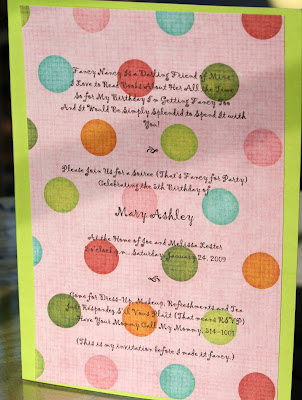 Fancy Nancy Is a Darling Friend of Mine
I Love to Read Books About Her All the Time
So for My Birthday I'm Getting Fancy Too
And It Would Be Simply Splendid to Spend It with
You!
Please Join Us for a Soiree (That's Fancy for Party)
Celebrating the 5th Birthday of
Mary Ashley
At the Home of Joe and Melissa Lester
o'clock p.m. Saturday, January 24, 2009
Come for Dress-Up, Makeup, Refreshments and Tea
Just Respondez S'il Vous Plait (That means RSVP)
Have Your Mommy Call My Mommy, 514-1001
(This is my invitation before I made it fancy.)